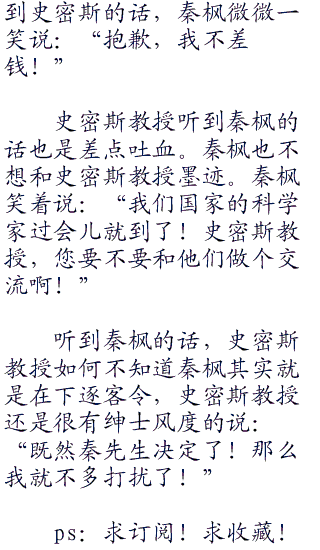 到史密斯的话，秦枫微微一
笑说：“抱歉，我不差
钱！”
史密斯教授听到秦枫的
话也是差点吐血。秦枫也不
想和史密斯教授墨迹。秦枫
笑着说：“我们国家的科学
家过会儿就到了！史密斯教
授，您要不要和他们做个交
流啊！”
听到秦枫的话，史密斯
教授如何不知道秦枫其实就
是在下逐客令，史密斯教授
还是很有绅士风度的说：
“既然秦先生决定了！那么
我就不多打扰了！”
ps：求订阅！求收藏！